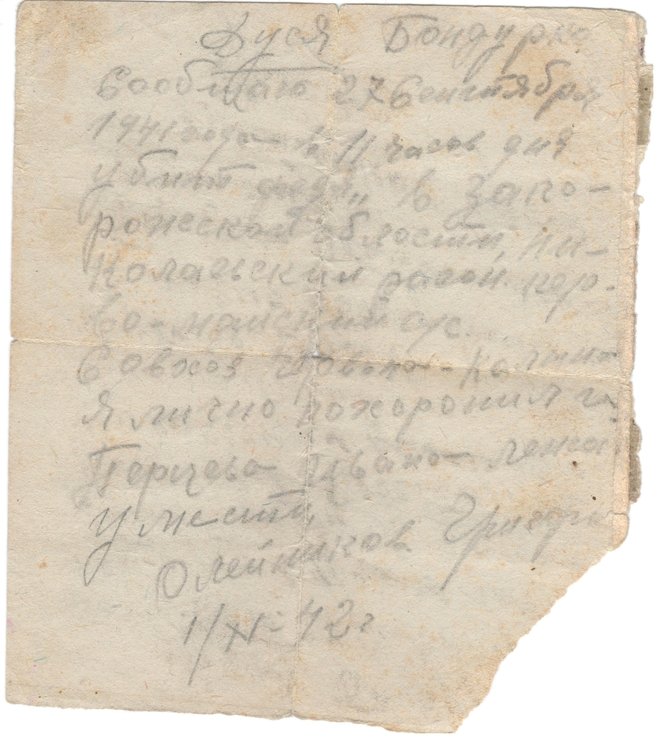 Дуся Бондурко
Сообщаю 27 Сентября
1941 года в 11 часов дня
убит в Запо-
рожеской области, Ни-
колаевский район. пер.
во-майский с/с.
Совхоз
Я лично похоронил
Перцево Ивано
у мести
Олейников Григори
1/XI-42г